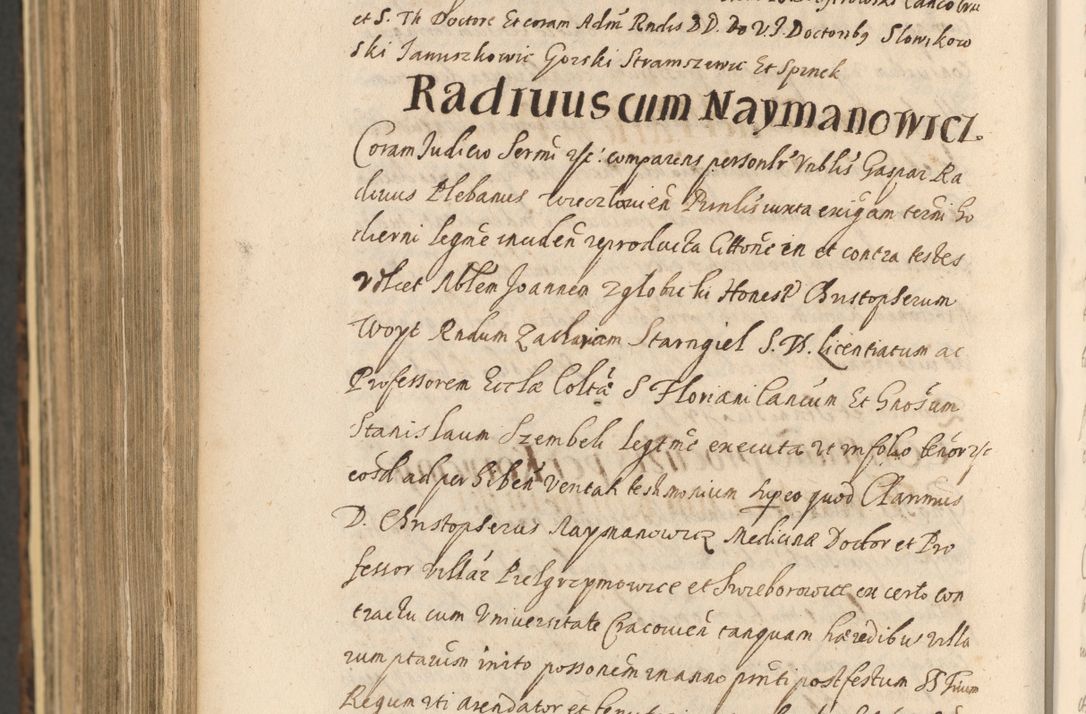 et S. Th Doctore Et coram Adm Rndis DD. Do V. J. Doctoribq Slowikow
ski Januszkowic Gorski Stramszewic Et Spinek
Radivus cum Naymanowicz.
Coram Judicio Sermi &c: comparens personlr Vnblis Gaspar Ra
divus Plebanus Wieczlovien Prinlis iuxta exigam termi ho
dierni legme inciden reproducta Cittone in et contra testes
vdlcet Nblem Joannem Zglobicki Honest Christopherum
Woyt Rndum Zachariam Starngiel S. Th. Licentiatum ac
Professorem Ecclæ Colta S Floriani Cancum Et Gnosum
Stanislaum Szembek legtme executa ut in folio tenor &c
eosd ad perhiben Veritati testimonium super eo quod Clarimus
D. Christopherus Naymanowicz Medicinæ Doctor et Pro
fessor villar Pielgrzymowice et Swieborowice ex certo con
tractu cum Vniversitate Cracovien tanquam hæredibus villa
rum ptarum inito possonem in anno prnti post festum SS Trium
Regum uti arendator et